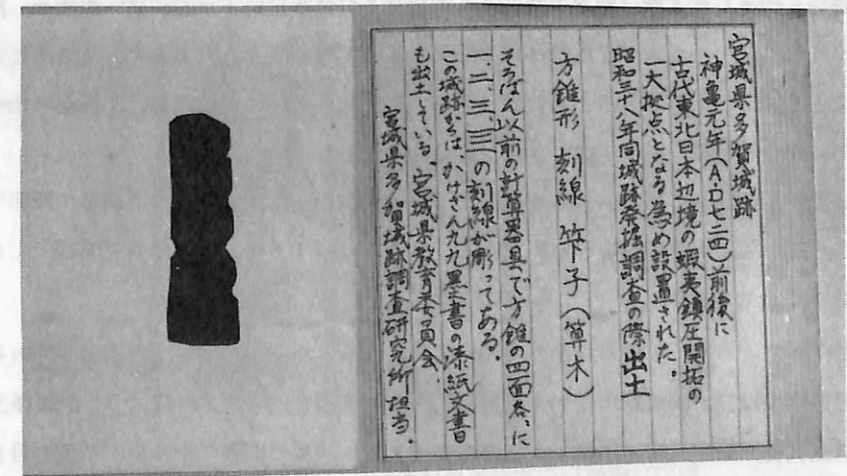 宮城県多賀城跡
神亀元年(A・D七二四)前後に
古代東北日本辺境の蝦夷鎮圧開拓の
一大拠点となる為め設置された。
昭和三十八年同城跡発掘調査の際出土
方錐形 刻線 竿子(算木)
そろばん以前の計算器具で方錐の四面各〻に
一、二、三、亖の刻線が彫ってある。
この城跡からは、かけざん九九墨書の漆紙文書
も出土している。宮城県教育委員会、
宮城県多賀城跡調査研究所担当。